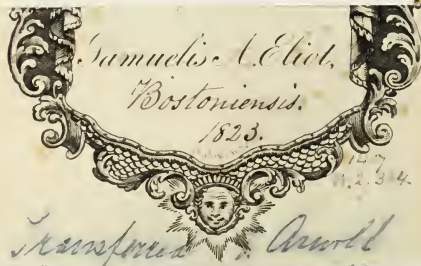 Samuelis A. Eliot,
Bostoniensis.
1823.
147
Transferred